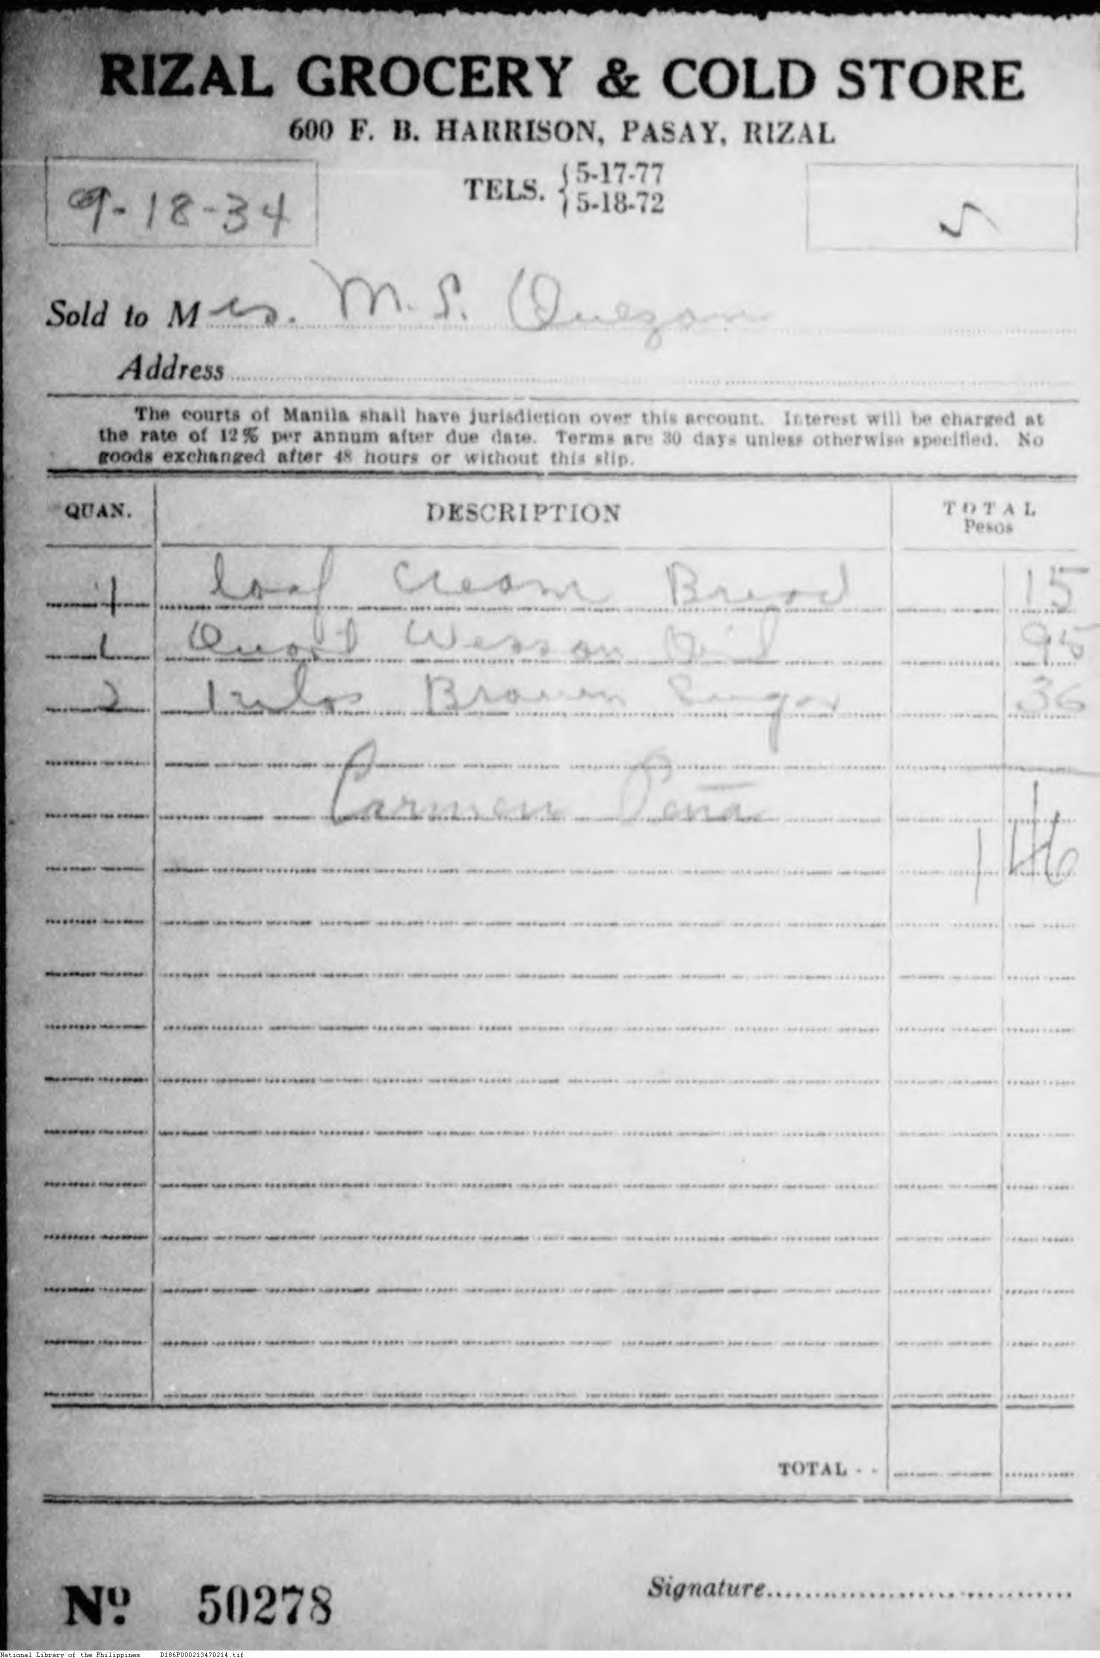 RIZAL GROCERY & COLD STORE
600 F. B. HARRISON, PASAY, RIZAL
TELS. { 5-17-77
5-18-72
9-18-34
5
Sold to Mrs. M. S. Quezon
Address
The courts of Manila shall have jurisdiction over this account. Interest will be charged at
the rate of 12% per annum after due date. Terms are 30 days unless otherwise specified. No
goods exchanged after 48 hours or without this slip.
QUAN. DESCRIPTION TOTAL
Pesos
1 loaf Cream Bread 15
1 Quart Wesson Oil 95
2 kilos Brown Sugar 36
Carmen Peña
1 46
TOTAL - -
Nº 50278
Signature
National Library of the Philippines D186P000213470214.tif